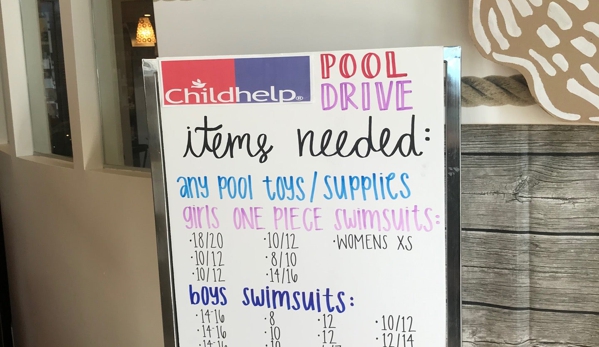 Childhelp®
POOL
DRIVE
items needed:
any pool toys/supplies
girls ONE PIECE swimsuits:
·18/20 ·10/12 ·WOMENS XS
·10/12 ·8/10
·10/12 ·14/16
boys swimsuits:
·14-16 ·8 ·12 ·10/12
·14-16 ·10 ·12 ·12/14